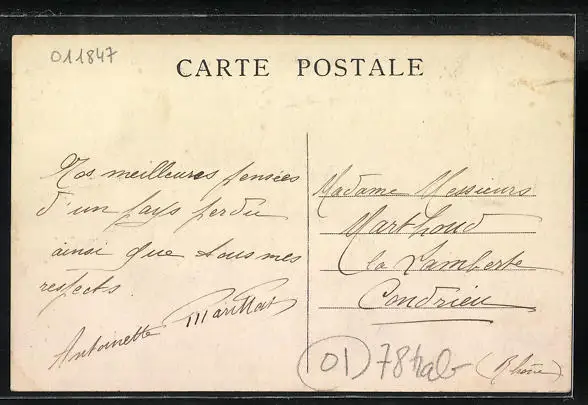 011847
CARTE POSTALE
Nos meilleures pensées
d'un pays perdu
ainsi que tous mes
respects
Antoinette
Madame Messieurs
Marthoud
la Lamberte
Condrieu
(Rhône)
01